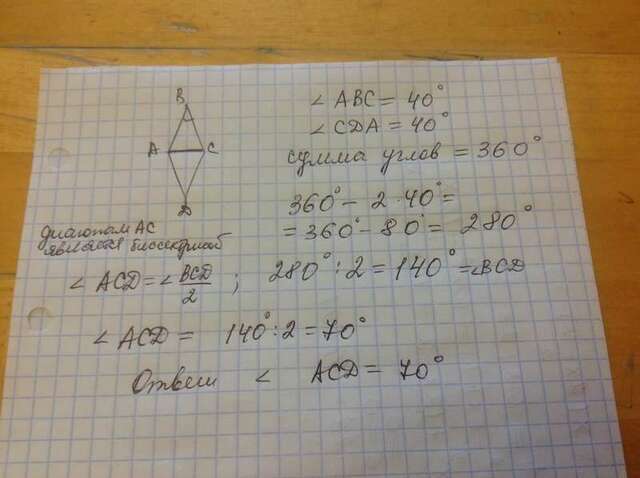 B
A C
D
∠ ABC = 40°
∠ CDA = 40°
сумма углов = 360°
360° - 2·40° =
= 360° - 80° = 280°
диагонал AC
является биссектрисой
∠ ACD = ∠ BCD/2 ; 280° : 2 = 140° = ∠BCD
∠ ACD = 140° : 2 = 70°
Ответ ∠ ACD = 70°